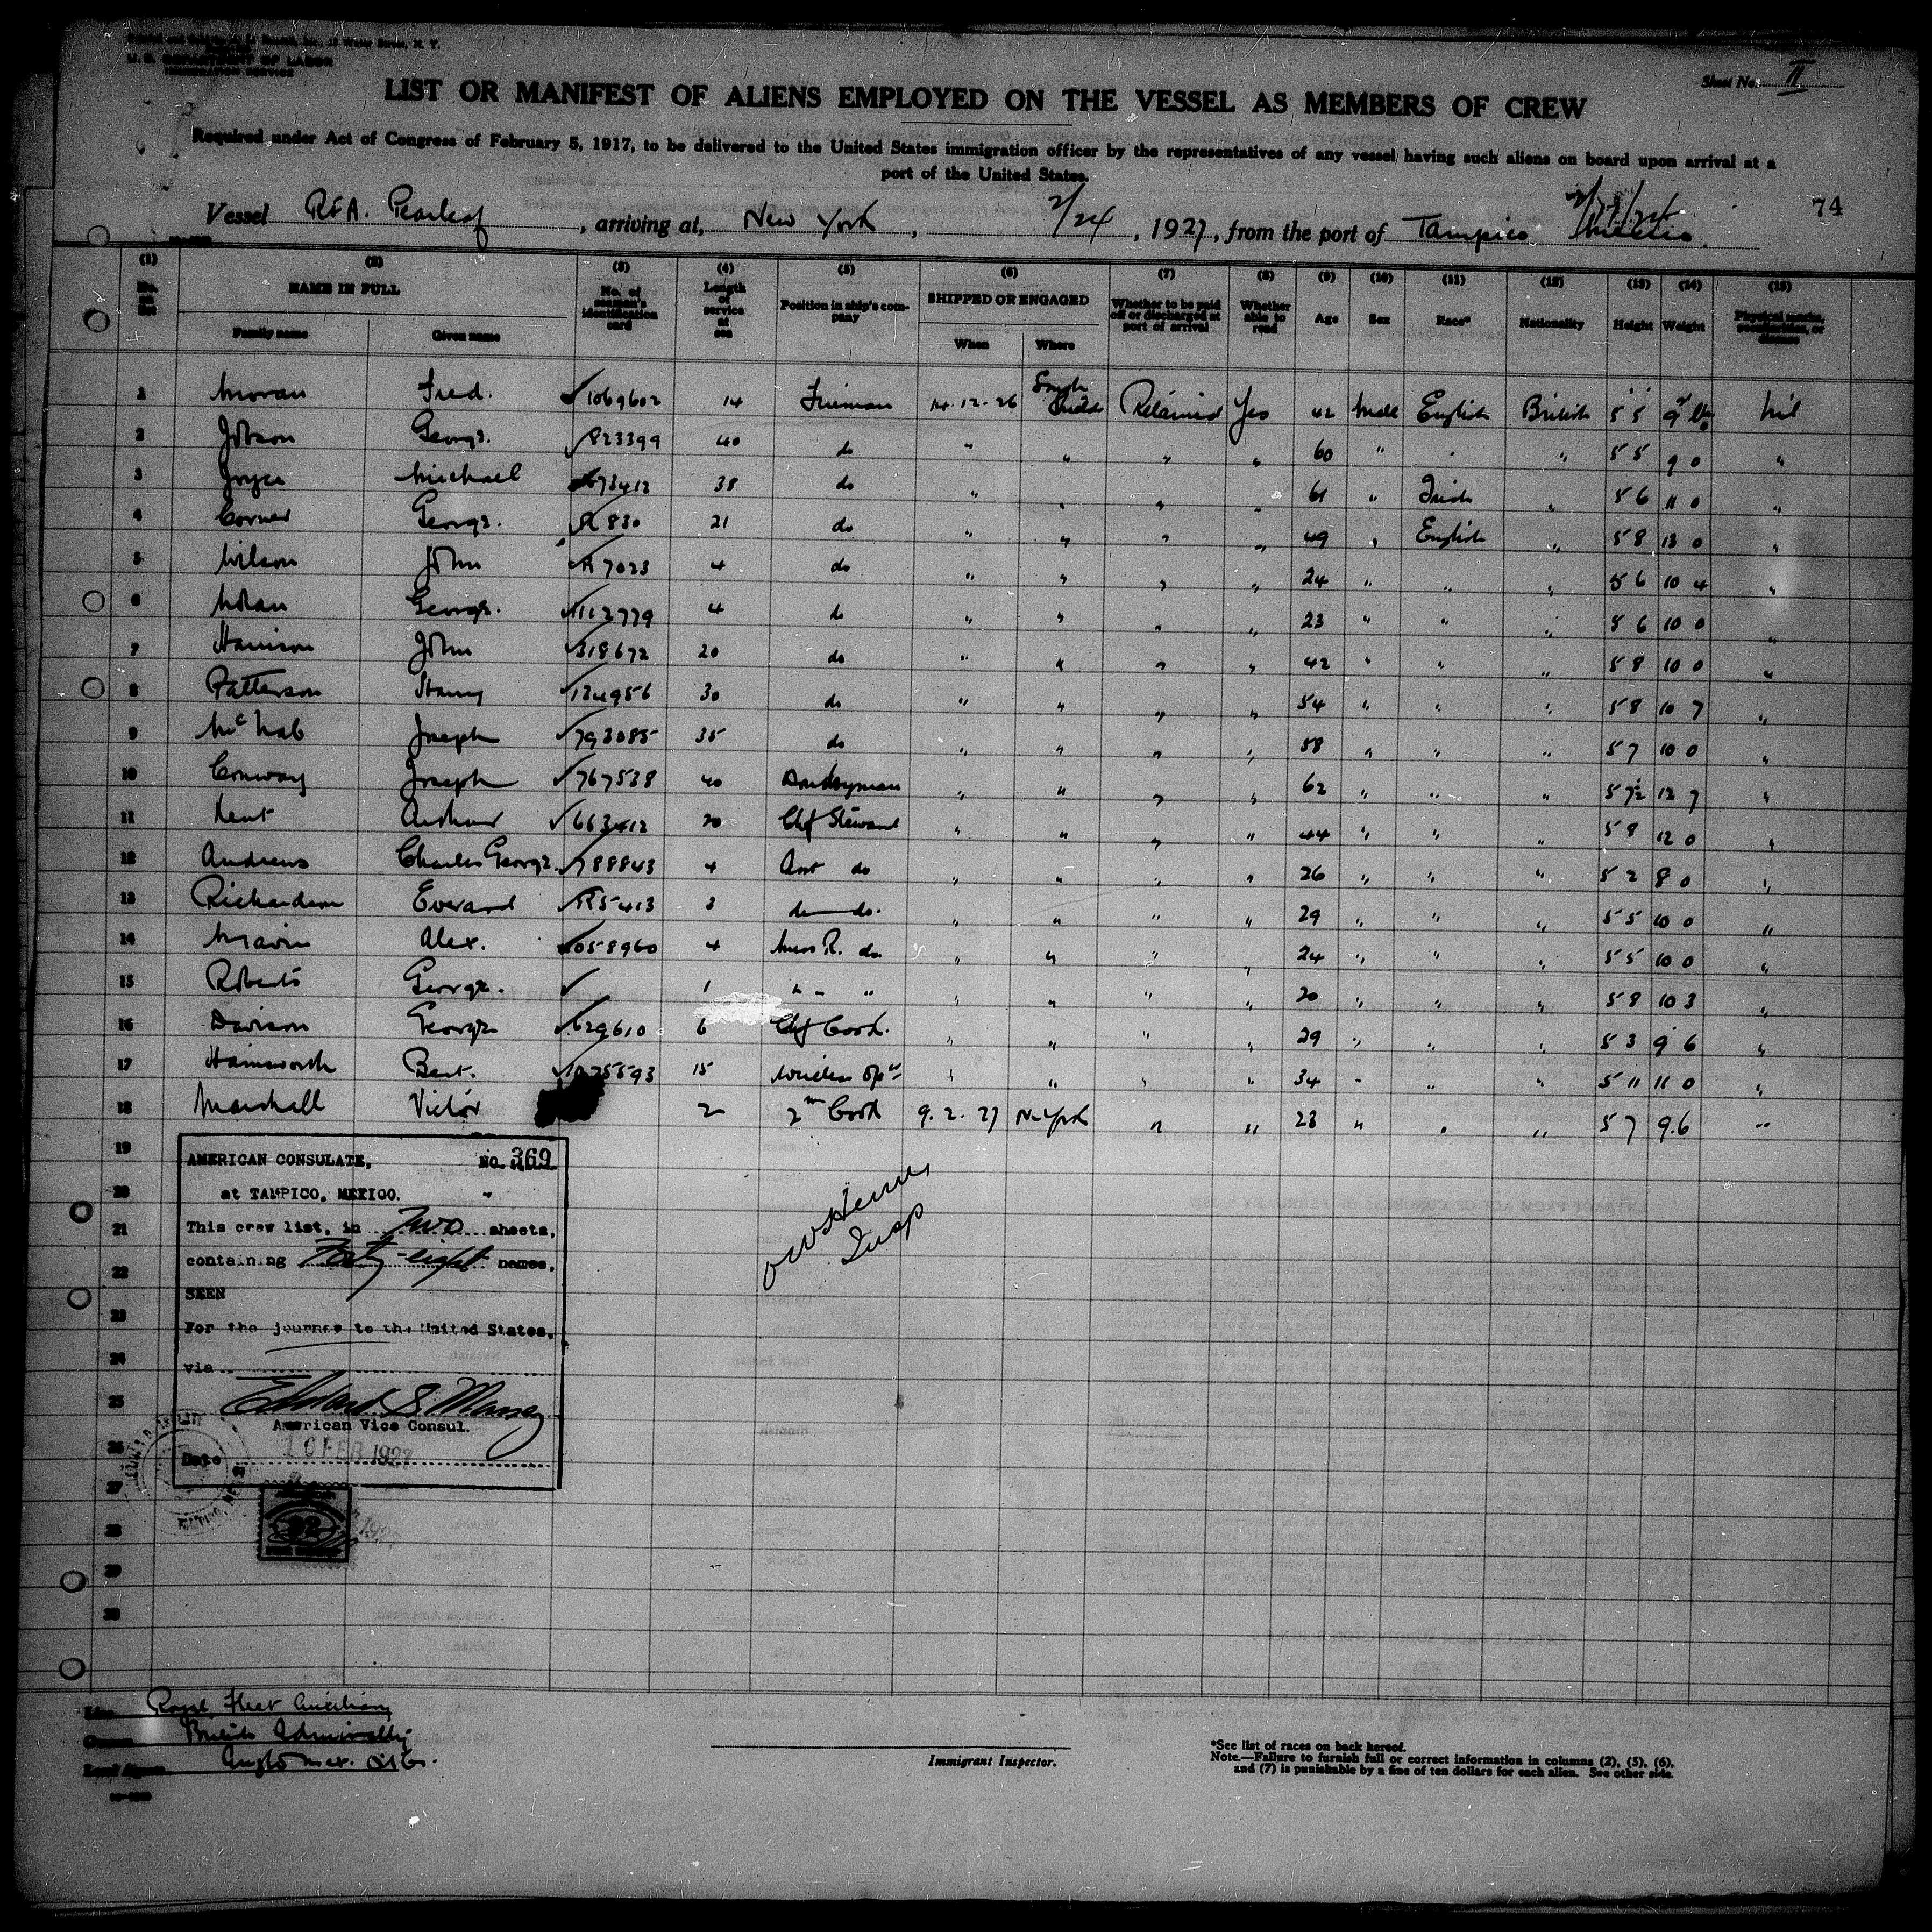 U. S. DEPARTMENT OF LABOR
IMMIGRATION SERVICE
Sheet No. II
LIST OR MANIFEST OF ALIENS EMPLOYED ON THE VESSEL AS MEMBERS OF CREW
Required under Act of Congress of February 5, 1917, to be delivered to the United States immigration officer by the representatives of any vessel having such aliens on board upon arrival at a
port of the United States.
74
Vessel RFA. Pearleaf, arriving at, New York, 2/24, 1927, from the port of Tampico Mexico.
(1) (2) (3) (4) (5) (6) (7) (8) (9) (10) (11) (12) (13) (14) (15)
No. on list NAME IN FULL No. of seaman's identification card Length of service at sea Position in ship's company SHIPPED OR ENGAGED Whether to be paid off or discharged at port of arrival Whether able to read Age Sex Race* Nationality Height Weight Physical marks, peculiarities, or disease
Family name Given name When Where
1 Moran Fred. 1069602 14 Fireman 14.12.26 South Shields Retained Yes 42 Male English British 5 5 9 Nil
2 Jobson George. 823399 40 do " " " " 60 " " " 5 5 9 0 "
3 Joyce Michael 673412 38 do " " " " 61 " Irish " 5 6 11 0 "
4 Corner George. R 830 21 do " " " " 49 " English " 5 8 13 0 "
5 Wilson John R 7023 4 do " " " " 24 " " " 5 6 10 4 "
6 Nolan George. 1112779 4 do " " " " 23 " " " 5 6 10 0 "
7 Harrison John 318672 20 do " " " " 42 " " " 5 8 10 0 "
8 Patterson Henry 124956 30 do " " " " 54 " " " 5 8 10 7 "
9 McNab Joseph 793085 35 do " " " " 58 " " " 5 7 10 0 "
10 Conway Joseph 767538 40 Donkeyman " " " " 62 " " " 5 7½ 12 7 "
11 Kent Arthur 663412 20 Chf Steward " " " " 44 " " " 5 8 12 0 "
12 Andrews Charles George. 788843 4 Asst do " " " " 26 " " " 5 2 8 0 "
13 Richardson Everard R5413 3 do do. " " " " 29 " " " 5 5 10 0 "
14 Alex. 1058960 4 Mess R. do. " " " " 24 " " " 5 5 10 0 "
15 Roberts George. 1 " " " " " " " 20 " " " 5 8 10 3 "
16 Davison George 629610 6 Chf Cook. " " " " 29 " " " 5 3 9 6 "
17 Hainsworth Bert. 1075593 15 Wireless Opr " " " " 34 " " " 5 11 11 0 "
18 Marshall Victor 2 2nd Cook 9.2.27 N-York " " 23 " " " 5 7 9.6 "
19
20
21
22
23
24
25
26
27
28
29
30
AMERICAN CONSULATE, NO. 369
at TAMPICO, MEXICO.
This crew list, in Two sheets,
containing Forty-eight names,
SEEN
For the journey to the United States,
via
American Vice Consul.
Date 16 FEB 1927
Insp
Royal Fleet Auxiliary
Owners British Admiralty
Local Agents Anglo Mex. Oil Co.
Immigrant Inspector.
*See list of races on back hereof.
Note.—Failure to furnish full or correct information in columns (2), (5), (6),
and (7) is punishable by a fine of ten dollars for each alien. See other side.